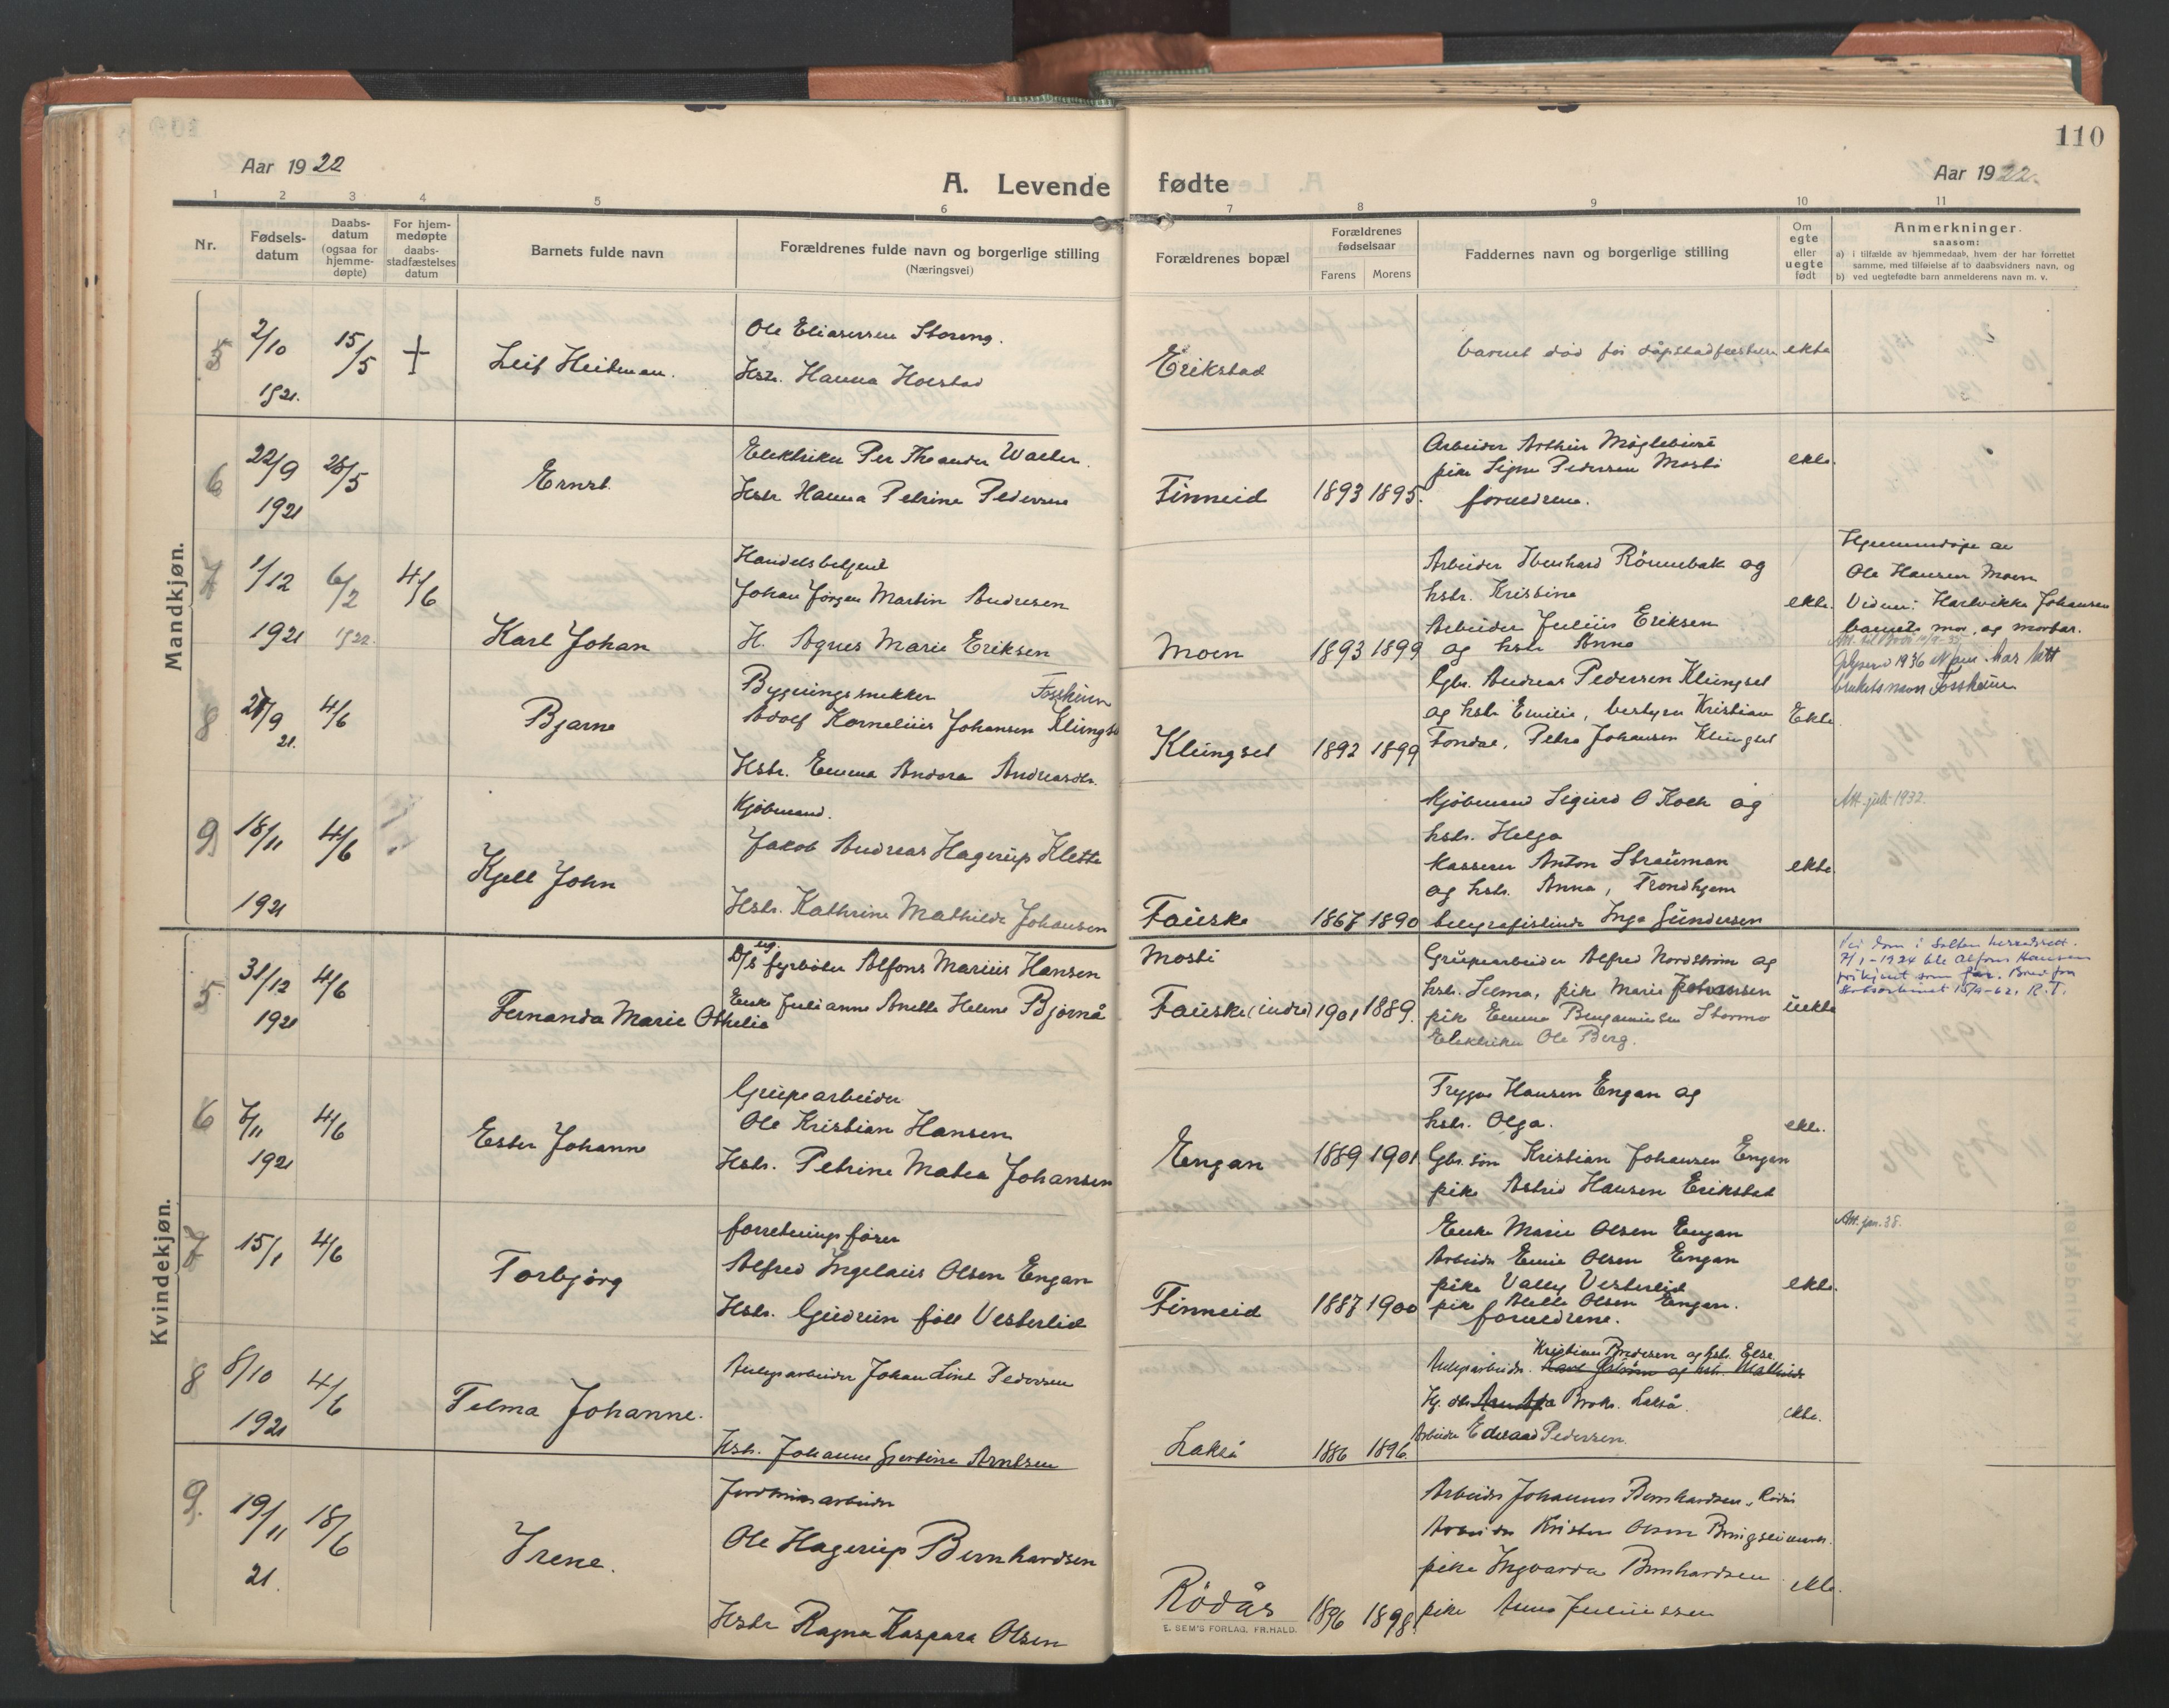 110
Aar 1922
A. Levende fødte
Aar 1922.
1 2 3 4 5 6 7 8 9 10 11
Nr.
Fødsels-
datum
Daabs-
datum
(ogsaa for
hjemme-
døpte)
For hjem-
medøpte
daabs-
stadfæstelses
datum
Barnets fulde navn
Forældrenes fulde navn og borgerlige stilling
(Næringsvei)
Forældrenes bopæl
Forældrenes
fødselsaar
Farens Morens
Faddernes navn og borgerlige stilling
Om
egte
eller
uegte
født
Anmerkninger.
saasom:
a) i tilfælde av hjemmedaab, hvem der har forrettet
samme, med tilføielse af to daabsvidners navn, og
b) ved uegtefødte barn anmelderens navn m. v.
Mandkjøn.
5 2/10 1921. 15/5 +
Leif Heitman.
Ole Eliasersen Storeng.
Hstr. Hanna Hoestad
Erikstad
barnet død før dåpstadfestelse ekte
6 22/9 1921 28/5
Ernst
Elektriker Per Theander Walter.
Hstr Hanna Petrine Pedersen
Finneid 1893 1895.
Arbeider Arthur
pike Signe Pedersen Mosti
foreldrene.
ekte.
7 1/12 1921 6/2 1922. 4/6
Karl Johan
Handelsbetjent
Johan Jørgen Martin Andresen
H. Agnes Marie Eriksen
Moen 1893 1899
Arbeider Evenhard Rønnebak og
hstr. Kristine
Arbeider Julius Eriksen
og hstr Anna
ekte.
Hjemmedøpt av
Ole Hansen Moen
Vidner: Hartvikka Johansen
barnets mor. og morbar.
8 28/9 21. 4/6
Bjarne
Bygningssnekker Fossheim
Adolf Kornelius Johansen Klungset
Hstr. Emma Andora Andreasdtr.
Klungset 1892 1899
Gbr. Andreas Pedersen Klungset
og hstr Emilie, bestyrer Kristian
Fondal, Petra Johansen Klungset
Ekte.
1936 Navn. har tatt
bruketsnavn Fossheim
9 18/11 1921 4/6
Kjell John
Kjøbmand.
Jakob Andreas Hagerup Klette
Hstr. Kathrine Mathilde Johansen
Fauske 1867 1890
Kjøbmand Sigurd O Koch og
hstr. Helga
Kasserer Anton Strauman
og hstr. Anna, Trondhjem
telegrafistinde Inga Gundersen
ekte
Att. juli 1932.
Kvindekjøn.
5 31/12 1921 4/6
Fernanda Marie Othelie
ug. D/s fyrbøter Alfons Marius Hansen
Enke Julianne Anette Helene Bjørnå
Mosti
Fauske (indre) 1901 1889.
Grubearbeider Alfred Nordstrøm og
hstr. Selma, pik Marie Johansen
pike Emma Benjaminsen Stormo
Elektriker Ole Berg.
uekte
Ved dom i Salten herredsrett.
7/1-1924 ble Alfons Hansen
tilkjent som far. Brev fra
15/9-62. R.T.
6 7/11 1921 4/6
Ester Johanne
Grubearbeider
Ole Kristian Hansen
Hstr. Petrine Matea Johansen
Engan 1889 1901
Trygve Hansen Engan og
hstr. Olga.
Gbr. søn Kristian Johansen Engan
pike Astrid Hansen Erikstad
ekte.
7 15/1 4/6
Torbjørg
forretningsfører
Alfred Ingelaus Olsen Engan
Hstr. Gudrun føll Vesterlid
Finneid 1887 1900
Enke Marie Olsen Engan
Arbeider Olsen Engan
pike Valley Vesterlid
pike Olsen Engan.
foreldrene.
ekte.
Att. jan. 38.
8 8/10 1921 4/6
Telma Johanne.
Anlegsarbeider Johan Lind Pedersen
Hstr. Johanne Gjertine Arntsen
Lakså 1886 1896.
Kristian Pedersen og hstr. Else
Anlegsarbeider. og hstr. Mathilde
Lakså.
Arbeider Edvard Pedersen.
ekte.
9. 19/11 21. 18/6
Irene.
Jordbruksarbeider
Ole Hagerup Bernhardsen
Hstr Ragna Kaspara Olsen
Rödås 1896 1898
Arbeider Johannes Bernhardsen, Rödås
Arbeider Kristen Olsen
pike Ingvarda Bernhardsen
pike Anna Juliussen
ekte.
E. SEM'S FORLAG, FR.HALD.